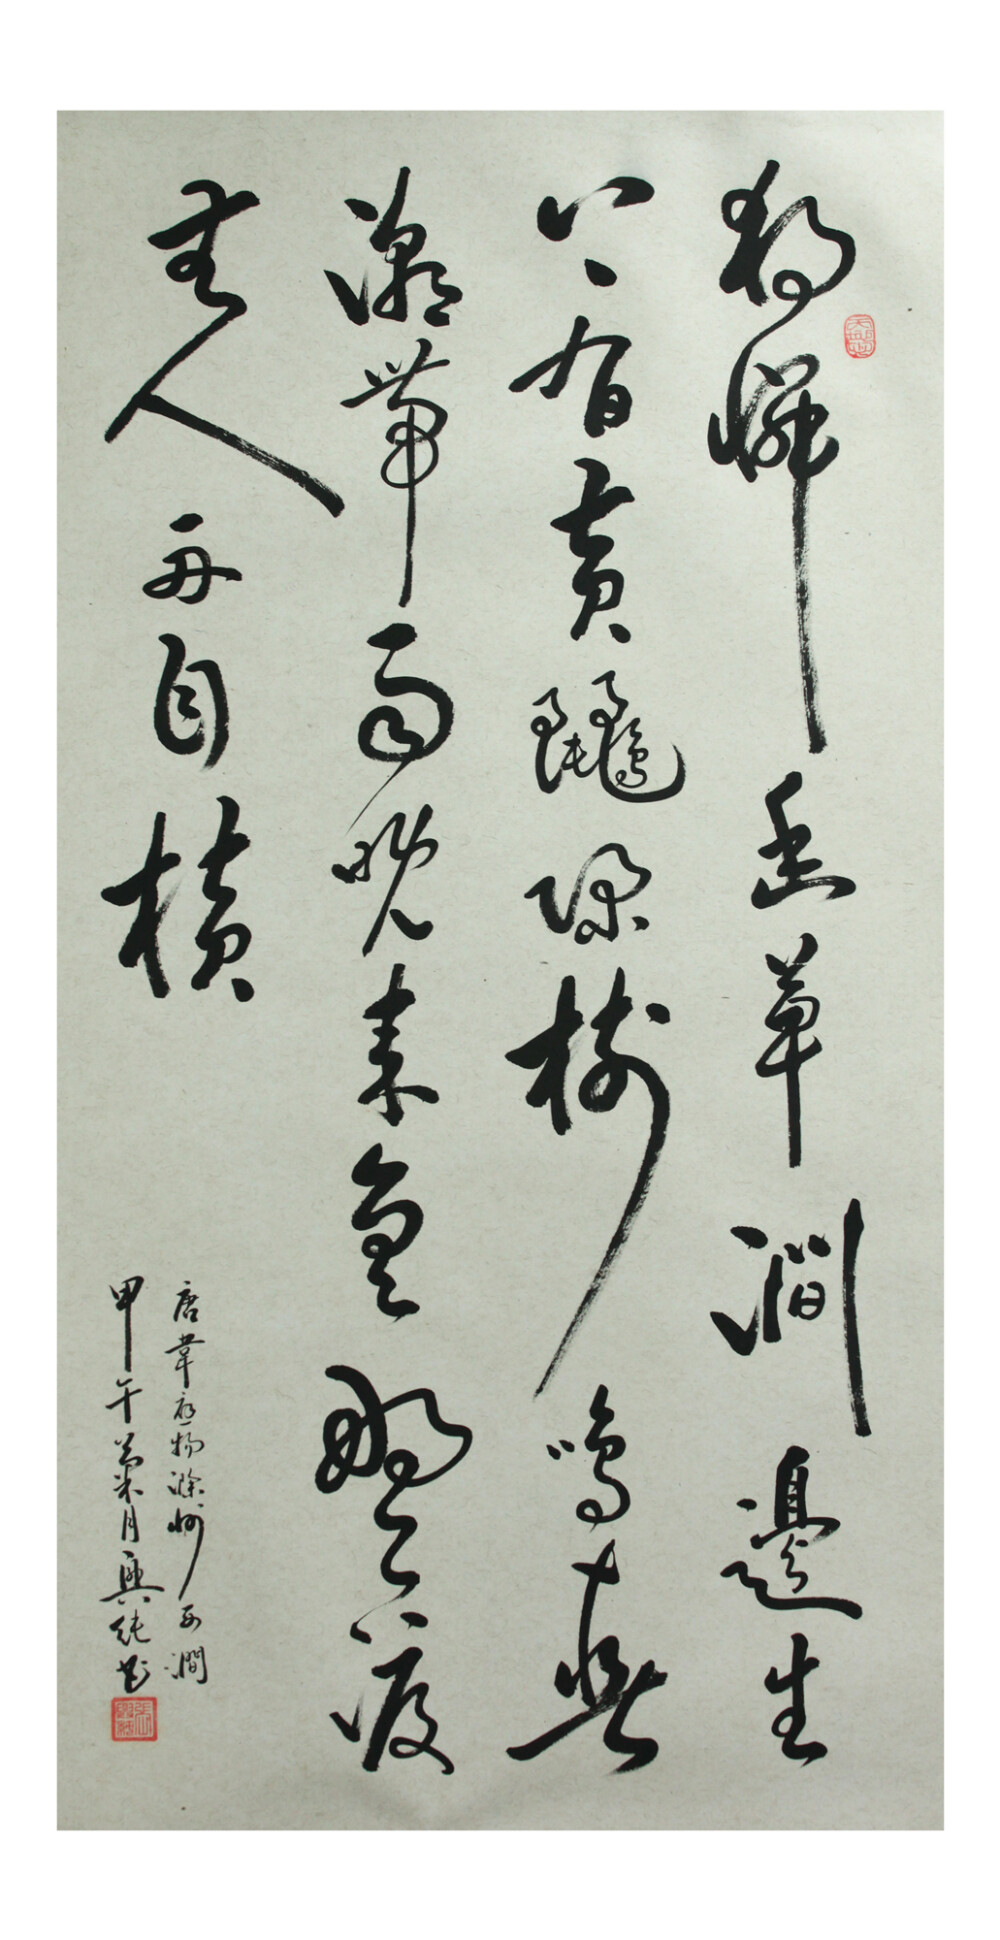 獨憐幽草澗邊生
上有黃鸝深樹鳴春
潮帶雨晚來急野渡
無人舟自橫
唐韋應物滁州西澗
甲午菊月興純書